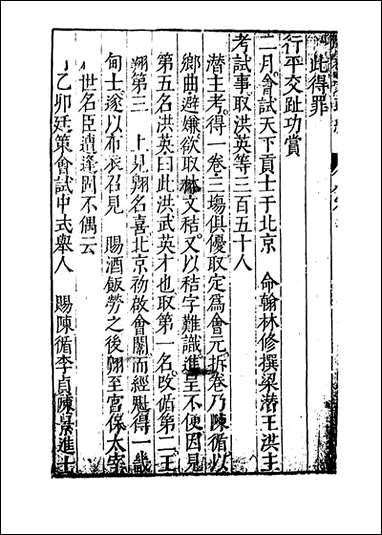 此得罪
行平交趾功賞
二月會試天下貢士于北京　命翰林修撰梁潛王洪主
考試事取洪英等三百五十人
潛主考得一卷三塲俱優取定爲會元拆卷乃陳循以
鄉曲避嫌欲取林文秸又以秸字難識進呈不便因見
第五名洪英曰此洪武英才也取第一名改循第二王
翺第三　上見翺名喜北京初啟會闈而經魁得一畿
甸士遂以布衣召見　賜酒飯勞之後翺至宮保太宰
世名臣遭逢固不偶云
乙卯廷策會試中式舉人　賜陳循李貞陳景進士